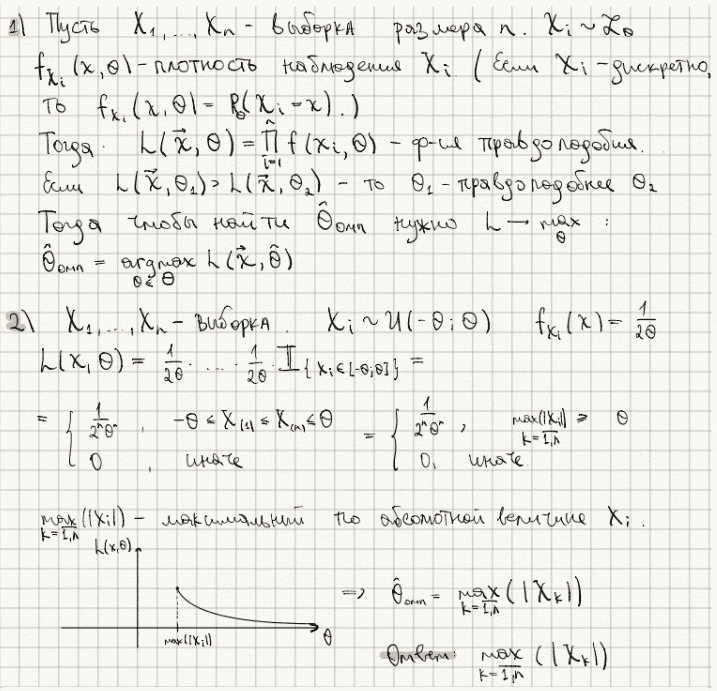 1) Пусть X₁,...,Xₙ - выборка размера n. Xᵢ ~ ℒ_θ
f_{Xᵢ}(x,θ) - плотность наблюдения Xᵢ (Если Xᵢ - дискретно,
то f_{Xᵢ}(x,θ) = P_θ(Xᵢ = x).)
Тогда. L(x⃗,θ) = ∏_{i=1}^{n} f(xᵢ,θ) - ф-ия правдоподобия.
Если L(x⃗,θ₁) > L(x⃗,θ₂) - то θ₁ - правдоподобнее θ₂
Тогда чтобы найти θ̂_{омп} нужно L → max_θ :
θ̂_{омп} = argmax_{θ∈Θ} L(x⃗,θ̂)
2) X₁,...,Xₙ - выборка. Xᵢ ~ U(-θ;θ) f_{Xᵢ}(x) = 1/2θ
L(x,θ) = 1/2θ · ... · 1/2θ · I_{{Xᵢ∈[-θ;θ]}} =
= { 1/2ⁿθⁿ, -θ ≤ X₍₁₎ ≤ X₍ₙ₎ ≤ θ = { 1/2ⁿθⁿ, max_{k=1,n}(|Xᵢ|) ≥ θ
0, иначе 0, иначе
max_{k=1,n}(|Xᵢ|) - максимальный по абсолютной величине Xᵢ.
L(x,θ)
⇒ θ̂_{омп} = max_{k=1,n}(|X_k|)
max(|Xᵢ|) θ
Ответ: max_{k=1,n}(|X_k|)